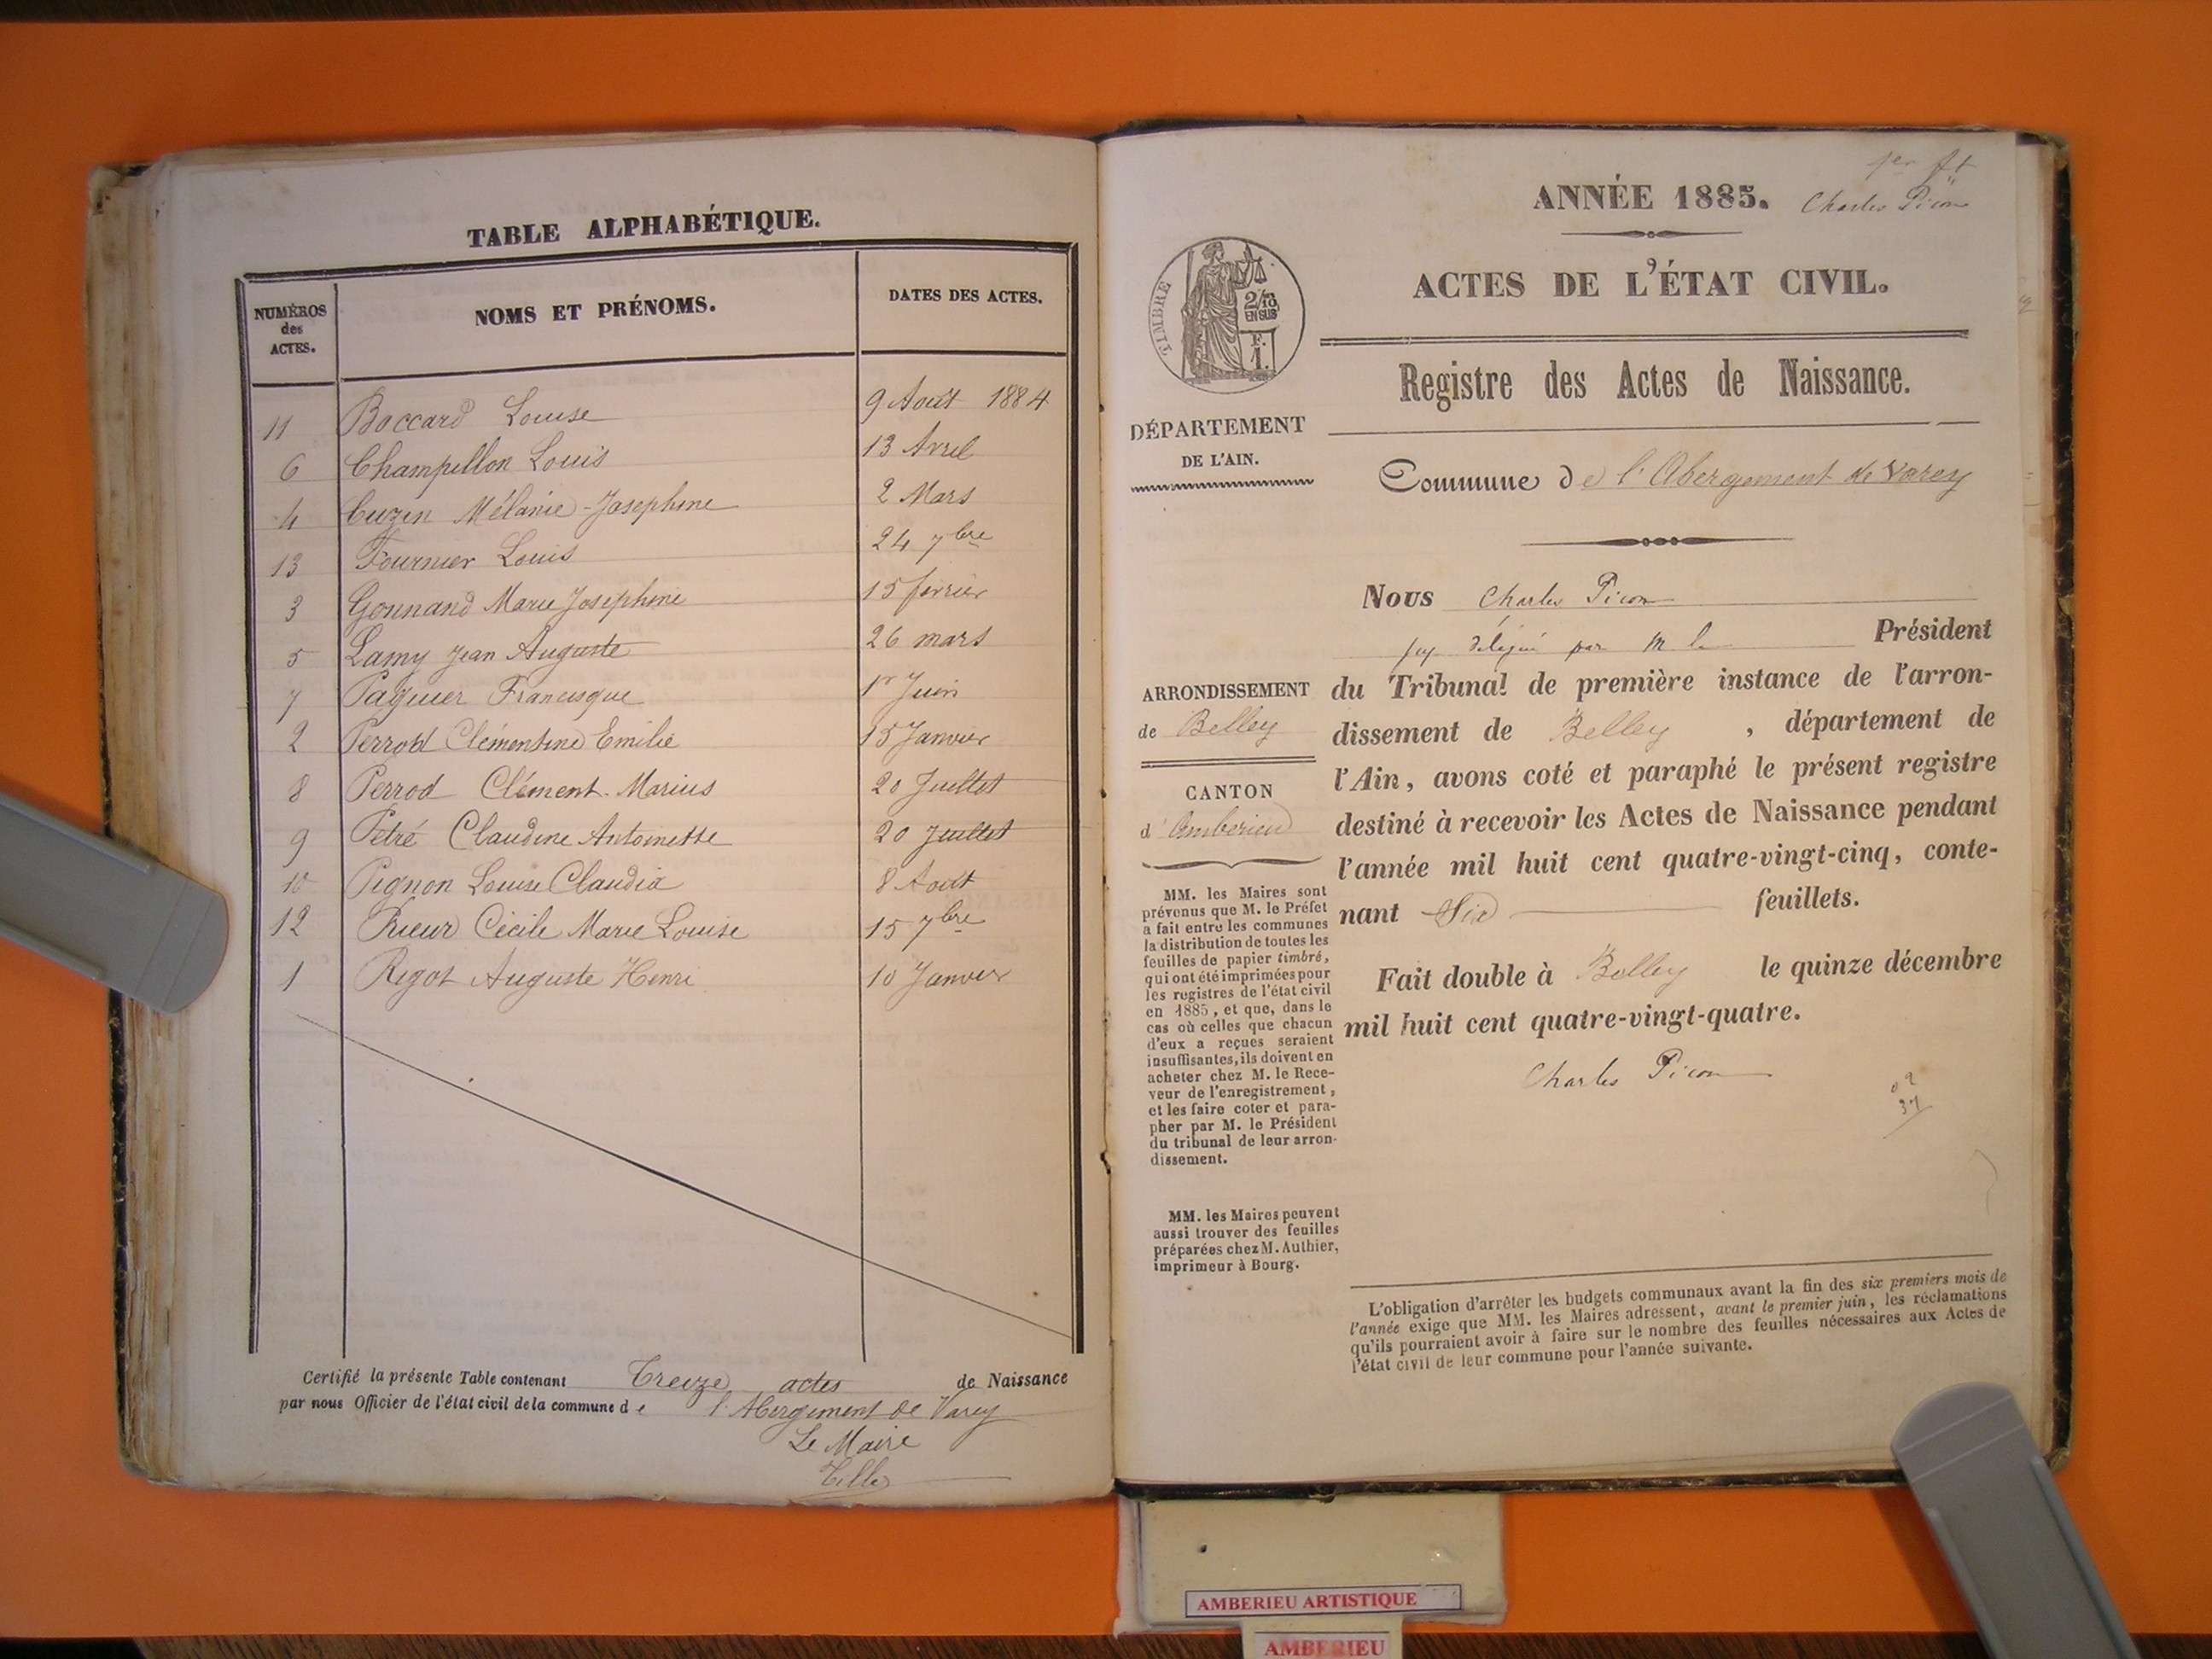 TABLE ALPHABÉTIQUE.
NUMÉROS
des
ACTES.
NOMS ET PRÉNOMS.
DATES DES ACTES.
11 Boccard Louise 9 Août 1884
6 Champillon Louis 13 Avril
4 Cuzin Mélanie-Josephine 2 Mars
13 Fournier Louis 24 7bre
3 Gonnand Marie Josephine 15 février
5 Lamy Jean Auguste 26 mars
7 Paquier Francisque 1r Juin
2 Perrod Clémentine Emilie 15 Janvier
8 Perrod Clément-Marius 20 Juillet
9 Petré Claudine Antoinette 20 Juillet
10 Pignon Louise Claudia 8 Août
12 Prieur Cécile Marie Louise 15 7bre
1 Rigot Auguste Henri 10 Janvier
Certifié la présente Table contenant Treize actes de Naissance
par nous Officier de l'état civil de la commune de l'Abergement de Varey
Le Maire
ANNÉE 1885.
1er ft
Charles Picon
ACTES DE L'ÉTAT CIVIL.
TIMBRE
2/10
EN SUS
F.
1.
Registre des Actes de Naissance.
DÉPARTEMENT
DE L'AIN.
Commune de l'Abergement de Varey
Nous Charles Picon
juge délégué par M le Président
du Tribunal de première instance de l'arron-
dissement de Belley, département de
l'Ain, avons coté et paraphé le présent registre
destiné à recevoir les Actes de Naissance pendant
l'année mil huit cent quatre-vingt-cinq, conte-
nant Six feuillets.
Fait double à Belley le quinze décembre
mil huit cent quatre-vingt-quatre.
Charles Picon
ARRONDISSEMENT
de Belley
CANTON
d'Amberieu
MM. les Maires sont
prévenus que M. le Préfet
a fait entre les communes
la distribution de toutes les
feuilles de papier timbré,
qui ont été imprimées pour
les registres de l'état civil
en 1885, et que, dans le
cas où celles que chacun
d'eux a reçues seraient
insuffisantes, ils doivent en
acheter chez M. le Rece-
veur de l'enregistrement,
et les faire coter et para-
pher par M. le Président
du tribunal de leur arron-
dissement.
MM. les Maires peuvent
aussi trouver des feuilles
préparées chez M. Authier,
imprimeur à Bourg.
L'obligation d'arrêter les budgets communaux avant la fin des six premiers mois de
l'année exige que MM. les Maires adressent, avant le premier juin, les réclamations
qu'ils pourraient avoir à faire sur le nombre des feuilles nécessaires aux Actes de
l'état civil de leur commune pour l'année suivante.
AMBERIEU ARTISTIQUE
AMBERIEU